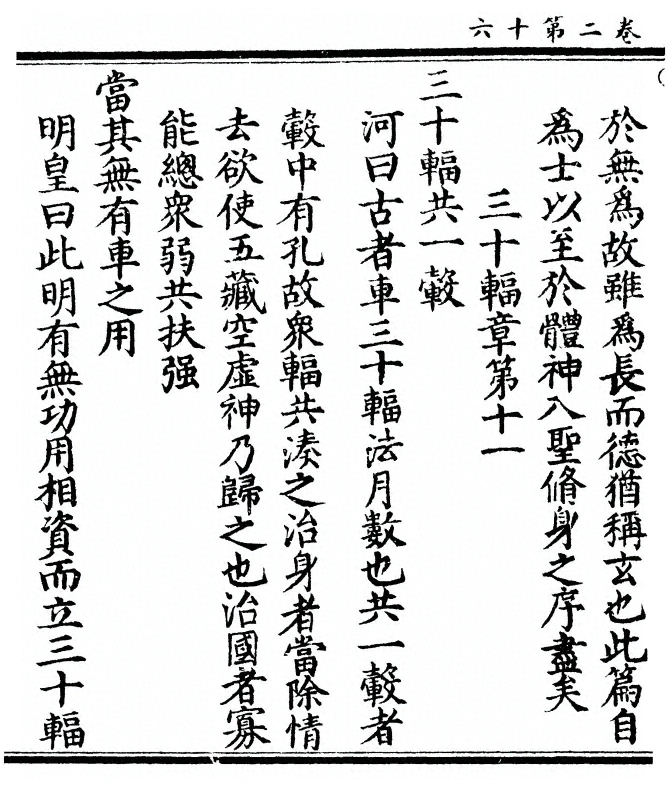 六十第二卷
於無爲故雖爲長而德猶稱玄也此篇自
爲士以至於體神入聖脩身之序盡矣
三十輻章第十一
三十輻共一轂
河曰古者車三十輻法月數也共一轂者
轂中有孔故衆輻共湊之治身者當除情
去欲使五藏空虛神乃歸之也治國者寡
能總衆弱共扶强
當其無有車之用
明皇曰此明有無功用相資而立三十輻